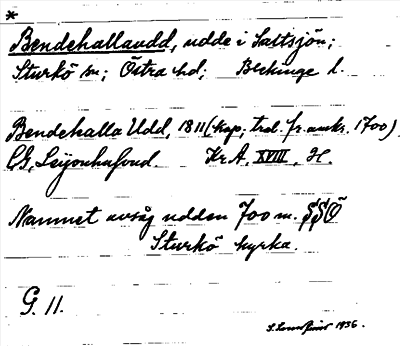 *
Bendehallaudd, udde i Saltsjön;
Sturkö sn; Östra hd; Blekinge l.
Bendehalla Udd, 1811 (kop; trol. fr. omkr. 1700)
CG, Leijonhufvud. Kr A, XVIII, H.
Namnet avsåg udden 700 m. SSÖ
Sturkö kyrka.
G. 11.
1936.